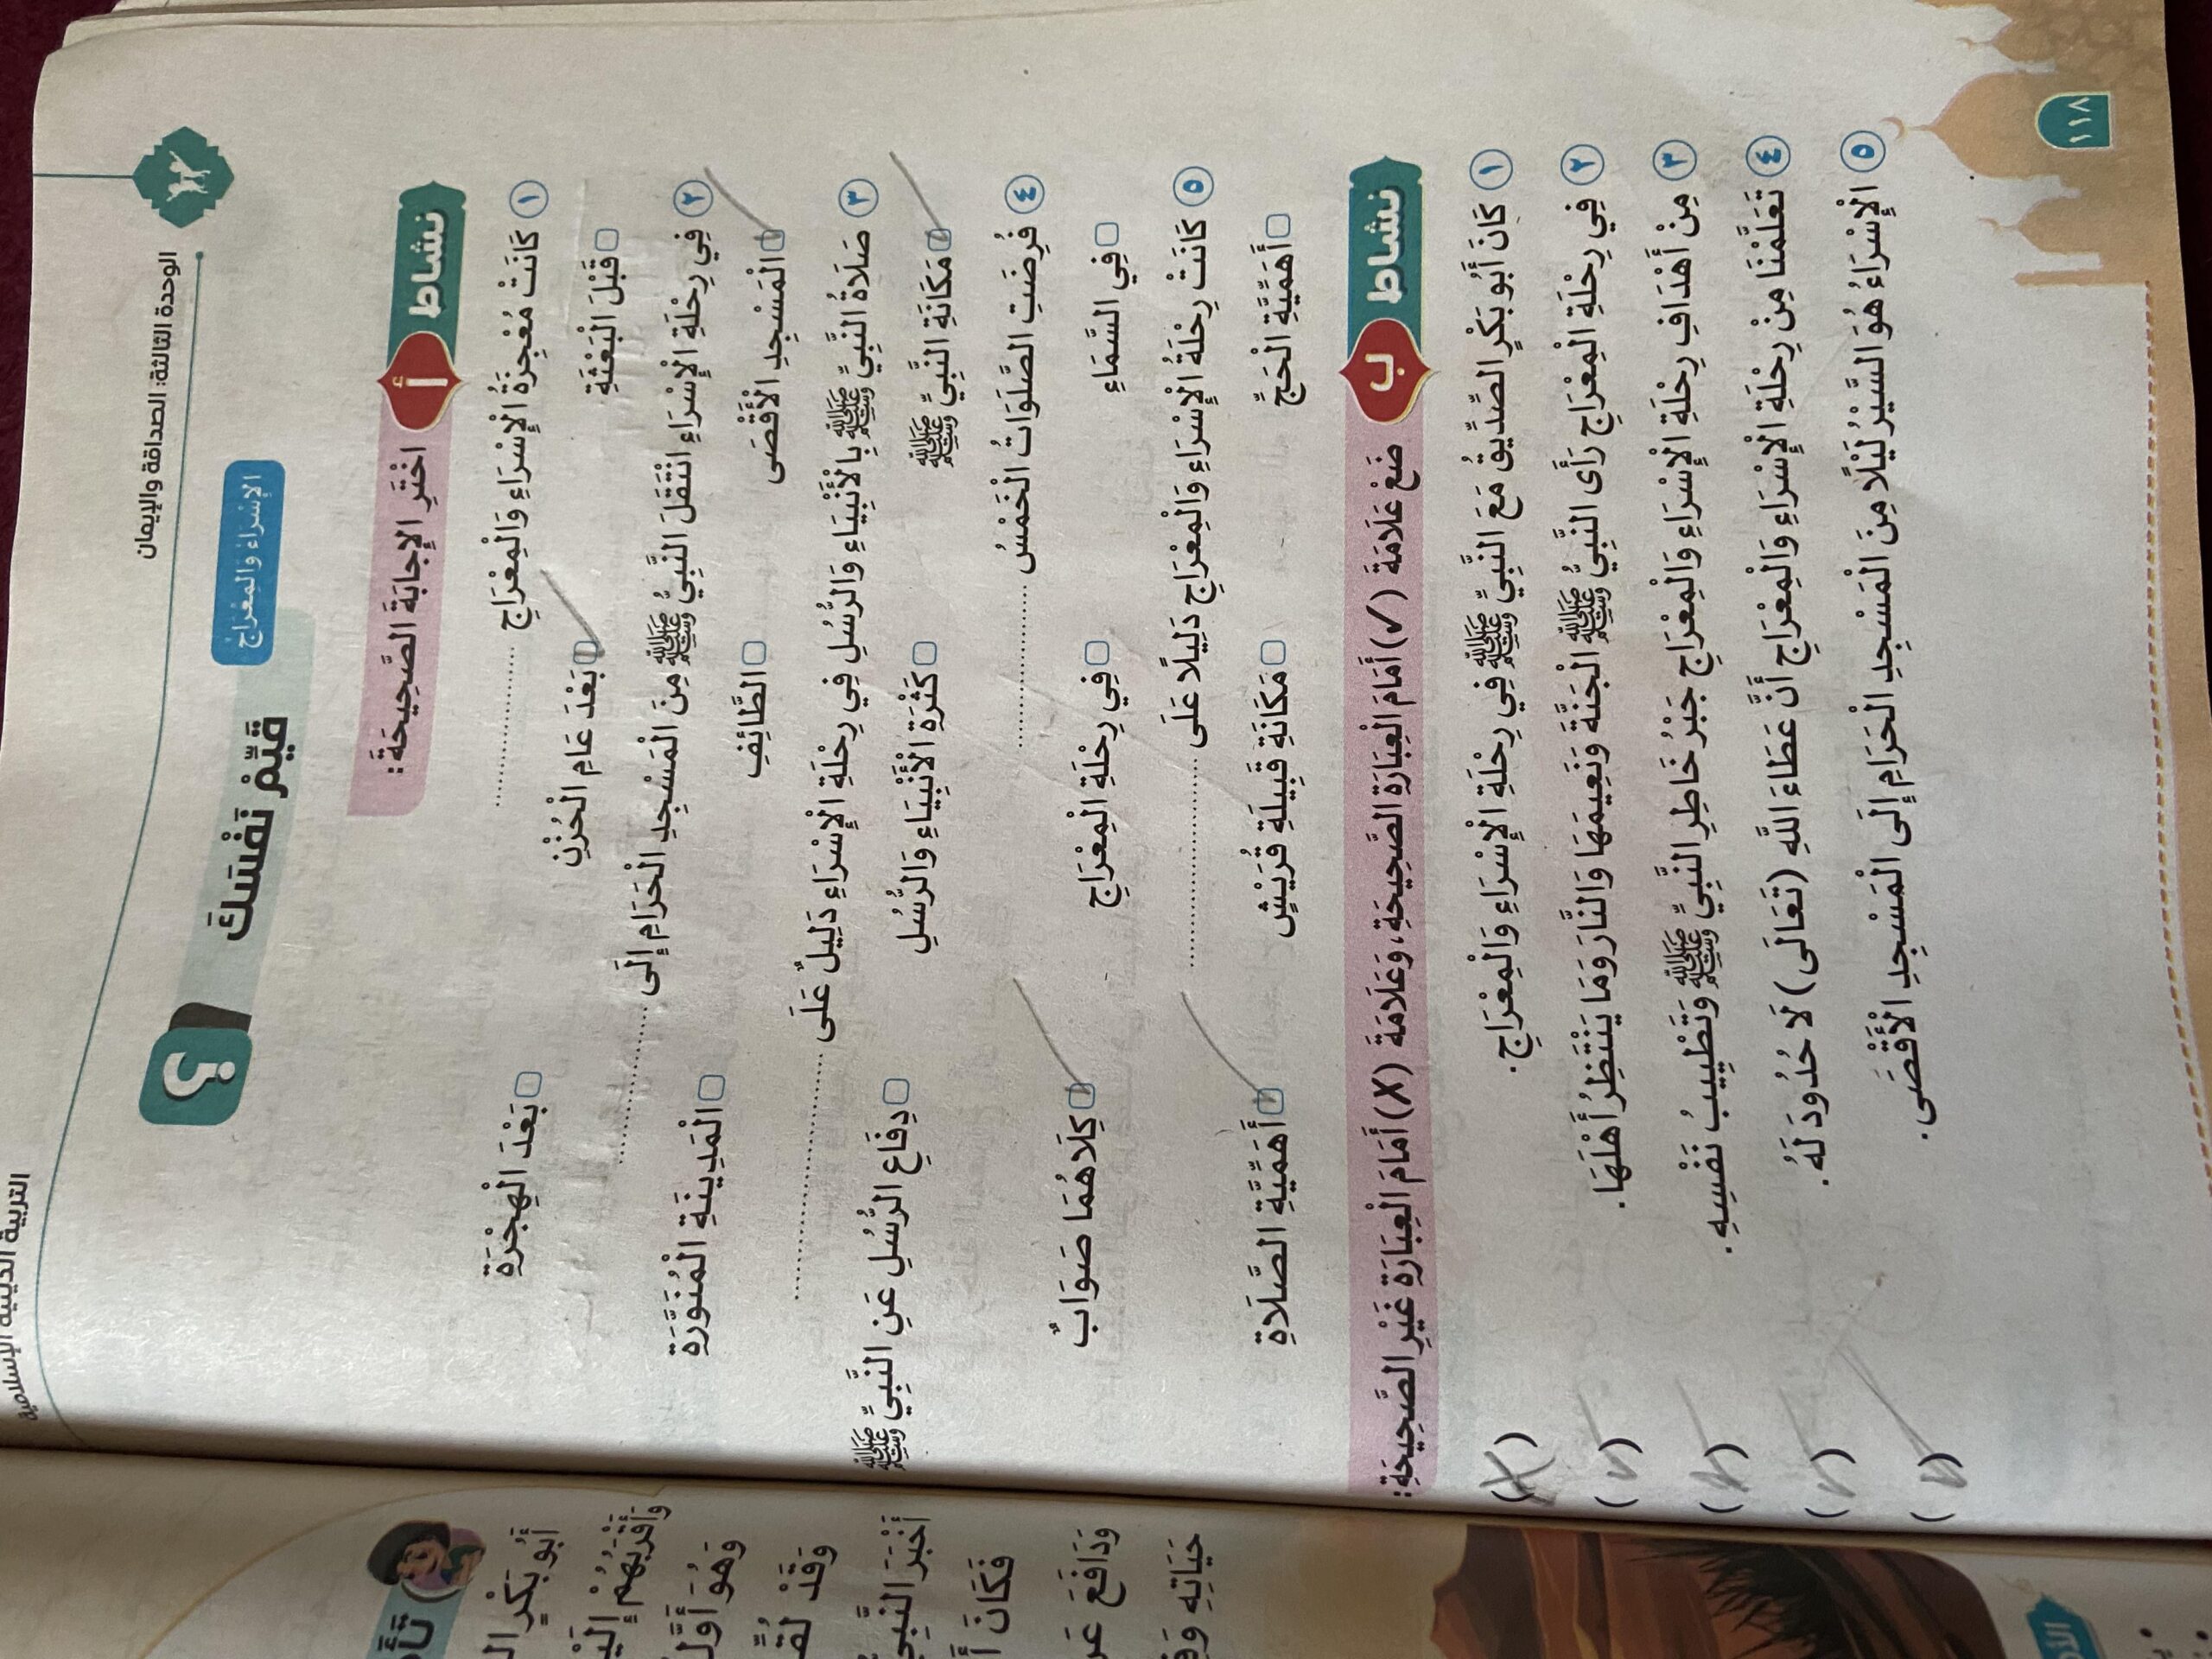 التربية الدينية الإسلامية
الوحدة الثالثة: الصداقة والإيمان
قَيِّمْ نَفْسَكَ
الإِسْرَاءُ وَالْمِعْرَاجُ
نشاط أ اخْتَرِ الإِجَابَةَ الصَّحِيحَةَ:
١ كَانَتْ مُعْجِزَةُ الْإِسْرَاءِ وَالْمِعْرَاجِ ...............
قَبْلَ الْبَعْثَةِ بَعْدَ عَامِ الْحُزْنِ بَعْدَ الْهِجْرَةِ
٢ فِي رِحْلَةِ الْإِسْرَاءِ انْتَقَلَ النَّبِيُّ ﷺ مِنَ الْمَسْجِدِ الْحَرَامِ إِلَى ...............
الْمَسْجِدِ الْأَقْصَى الطَّائِفِ الْمَدِينَةِ الْمُنَوَّرَةِ
٣ صَلَاةُ النَّبِيِّ ﷺ بِالْأَنْبِيَاءِ وَالرُّسُلِ فِي رِحْلَةِ الْإِسْرَاءِ دَلِيلٌ عَلَى ...............
مَكَانَةِ النَّبِيِّ ﷺ كَثْرَةِ الْأَنْبِيَاءِ وَالرُّسُلِ دِفَاعِ الرُّسُلِ عَنِ النَّبِيِّ ﷺ
٤ فُرِضَتِ الصَّلَوَاتُ الْخَمْسُ ...............
فِي السَّمَاءِ فِي رِحْلَةِ الْمِعْرَاجِ كِلَاهُمَا صَوَابٌ
٥ كَانَتْ رِحْلَةُ الْإِسْرَاءِ وَالْمِعْرَاجِ دَلِيلًا عَلَى ...............
أَهَمِّيَّةِ الْحَجِّ مَكَانَةِ قَبِيلَةِ قُرَيْشٍ أَهَمِّيَّةِ الصَّلَاةِ
نشاط ب ضَعْ عَلَامَةَ (✓) أَمَامَ الْعِبَارَةِ الصَّحِيحَةِ، وَعَلَامَةَ (X) أَمَامَ الْعِبَارَةِ غَيْرِ الصَّحِيحَةِ:
١ كَانَ أَبُو بَكْرٍ الصِّدِّيقُ مَعَ النَّبِيِّ ﷺ فِي رِحْلَةِ الْإِسْرَاءِ وَالْمِعْرَاجِ. (X)
٢ فِي رِحْلَةِ الْمِعْرَاجِ رَأَى النَّبِيُّ ﷺ الْجَنَّةَ وَنَعِيمَهَا وَالنَّارَ وَمَا يَنْتَظِرُ أَهْلَهَا. (✓)
٣ مِنْ أَهْدَافِ رِحْلَةِ الْإِسْرَاءِ وَالْمِعْرَاجِ جَبْرُ خَاطِرِ النَّبِيِّ ﷺ وَتَطْيِيبُ نَفْسِهِ. (✓)
٤ تَعَلَّمْنَا مِنْ رِحْلَةِ الْإِسْرَاءِ وَالْمِعْرَاجِ أَنَّ عَطَاءَ اللَّهِ (تَعَالَى) لَا حُدُودَ لَهُ. (✓)
٥ الْإِسْرَاءُ هُوَ السَّيْرُ لَيْلًا مِنَ الْمَسْجِدِ الْحَرَامِ إِلَى الْمَسْجِدِ الْأَقْصَى. (✓)
١١٨
أَبُو بَكْرٍ
وَأَقْرَبُهُمْ
وَهُوَ أَوَّلُ
وَقَدْ
أَخْبَرَ النَّبِيُّ
فَكَانَ
وَدَافَعَ
حَيَاتِهِ